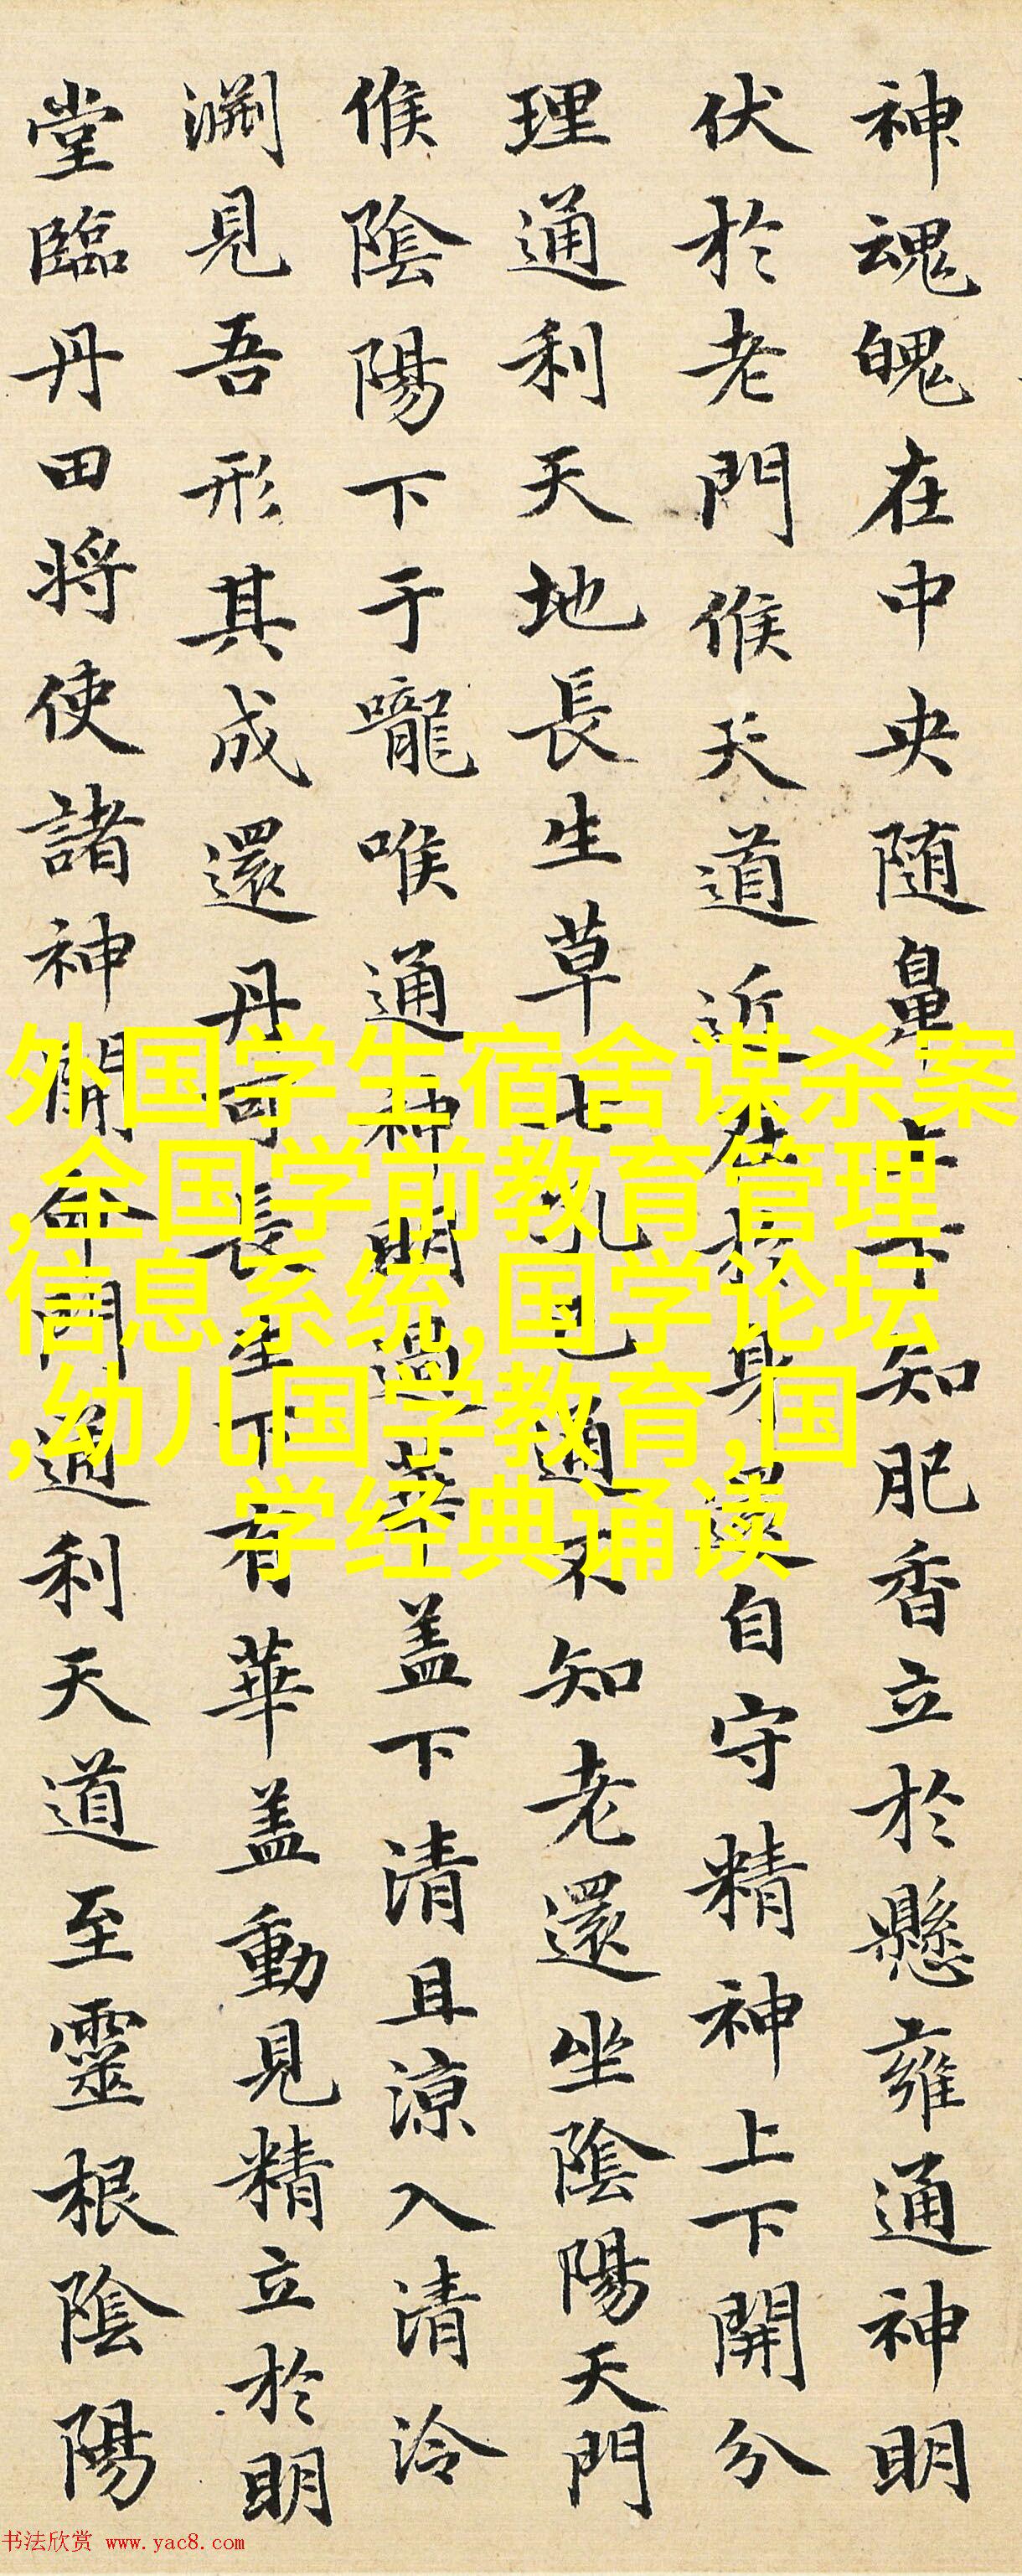 神魂魄在中央随鼻上下知肥香立於懸雍通神明
伏於老門候天道近在於身還自守精神上下開分
理通利天地長生草七孔已通不知老還坐陰陽天門
候陰陽下于嚨喉通神明過華盖下清且涼入清泠
淵見吾形其成還丹可長生下有華盖動見精立於明
堂臨丹田将使諸神開命門通利天道至靈根陰陽
外国学生宿舍谋杀案
,全国学前教育管理
信息系统,国学论坛
,幼儿国学教育,国
学经典诵读
书法欣赏 www.yac8.com